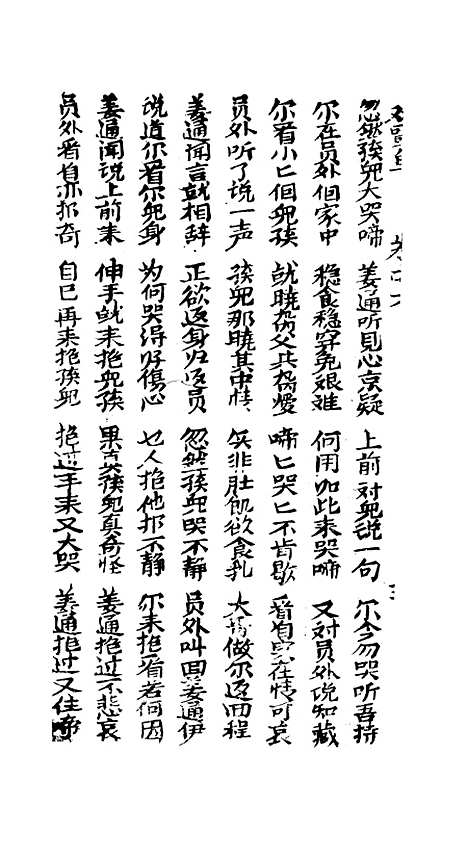 忽然孩兒大哭啼 姜通听見心京疑 上前对兒说一句 尔今勿哭听吾持
尔在员外個家中 稳食稳穿免艰难 何用如此来哭啼 又对员外说知藏
尔看小匕個兒孩 就曉為父共為爱 啼匕哭匕不肯歇 看自实在情可哀
员外听了说一声 孩兒那曉其中情 实非肚飢欲食乳 大看做尔返回程
姜通闻言就相辞 正欲返身归返员 忽然孩兒哭不静 员外叫回姜通伊
说道尔看尔兒身 为何哭得好傷心 乜人抱他都不静 尔来抱看若何因
姜通闻说上前来 伸手就来抱兒孩 果真孩兒真奇怪 姜通抱过不悲哀
员外看自亦都奇 自己再来抱孩兒 抱过手来又大哭 姜通抱过又住啼